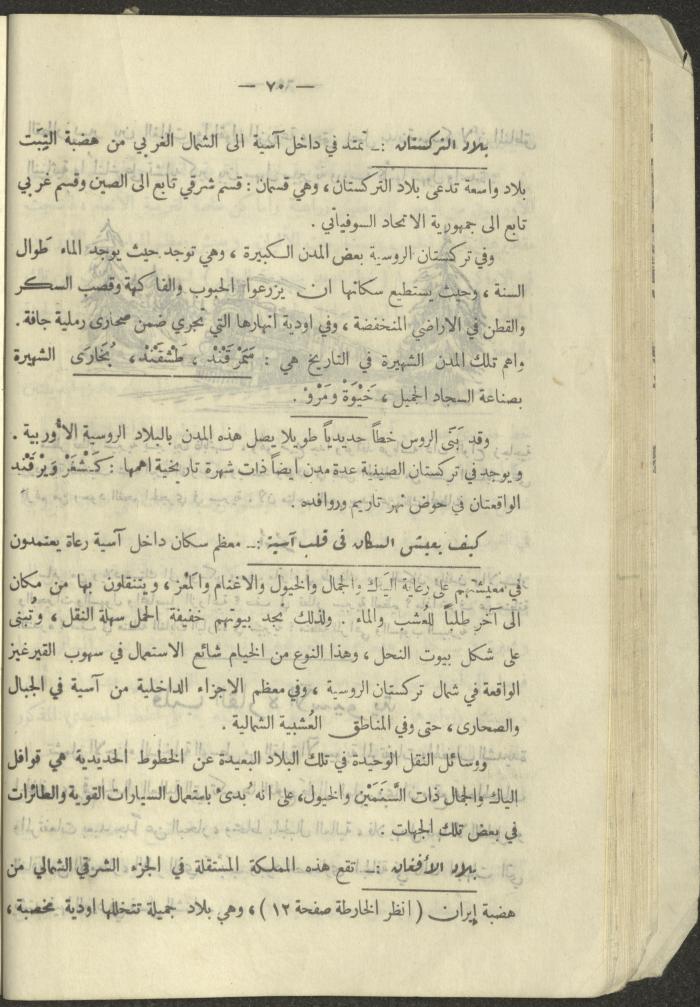 — ٧٠ —
بلاد التركستان :ـ تمتد في داخل آسية الى الشمال الغربي من هضبة التِبَت
بلاد واسعة تدعى بلاد التركستان ، وهي قسمان : قسم شرقي تابع الى الصين وقسم غربي
تابع الى جمهورية الاتحاد السوفياتي .
وفي تركستان الروسية بعض المدن الكبيرة ، وهي توجد حيث يوجد الماء طَوال
السنة ، وحيث يستطيع سكانها ان يزرعوا الحبوب والفاكهة وقصب السكر
والقطن في الاراضي المنخفضة ، وفي اودية انهارها التي تجري ضمن صحارى رملية جافة .
واهم تلك المدن الشهيرة في التاريخ هي : سَمَرْقَنْد ، طَشْقَنْد ، بُخَارَى الشهيرة
بصناعة السجاد الجميل ، خَيْوَةْ ومَرْوْ .
وقد بَنَى الروس خطاً حديدياً طويلا يصل هذه المدن بالبلاد الروسية الأوربية .
ويوجد في تركستان الصينية عدة مدن ايضاً ذات شهرة تاريخية اهمها : كَشْغَرْ وَيَرْقَنْد
الواقعتان في حوض نهر تاريم وروافده .
كيف يعيش السكان في قلب آسية :ـ معظم سكان داخل آسية رعاة يعتمدون
في معيشتهم على رعاية الياك والجمال والخيول والاغنام والمعز ، ويتنقلون بها من مكان
الى آخر طلباً للعُشب والماء . ولذلك نجد بيوتهم خفيفة الحمل سهلة النقل ، وتُبنى
على شكل بيوت النحل ، وهذا النوع من الخيام شائع الاستعمال في سهوب القيرغيز
الواقعة في شمال تركستان الروسية ، وفي معظم الاجزاء الداخلية من آسية في الجبال
والصحارى ، حتى وفي المناطق العُشبية الشمالية .
ووسائل النقل الوحيدة في تلك البلاد البعيدة عن الخطوط الحديدية هي قوافل
الياك والجمال ذات السَّنَمَيْن والخيول ، على انه بُدئ باستعمال السيارات القوية والطائرات
في بعض تلك الجهات .
بلاد الأفغان :ـ تقع هذه المملكة المستقلة في الجزء الشرقي الشمالي من
هضبة إيران ( انظر الخارطة صفحة ١٢ ) ، وهي بلاد جميلة تتخللها اودية مخصبة ،